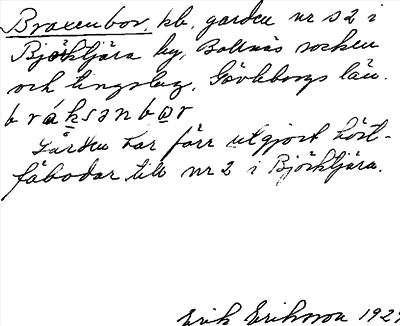 Braxenbor, kb, garden nr s2 i
Björktjära by, Bollnäs socken
och tingslag, Gävleborgs län.
bráksənbər
Gården har förr utgjort höst-
fäbodar till nr 2 i Björktjära.
Erik Eriksson 1929